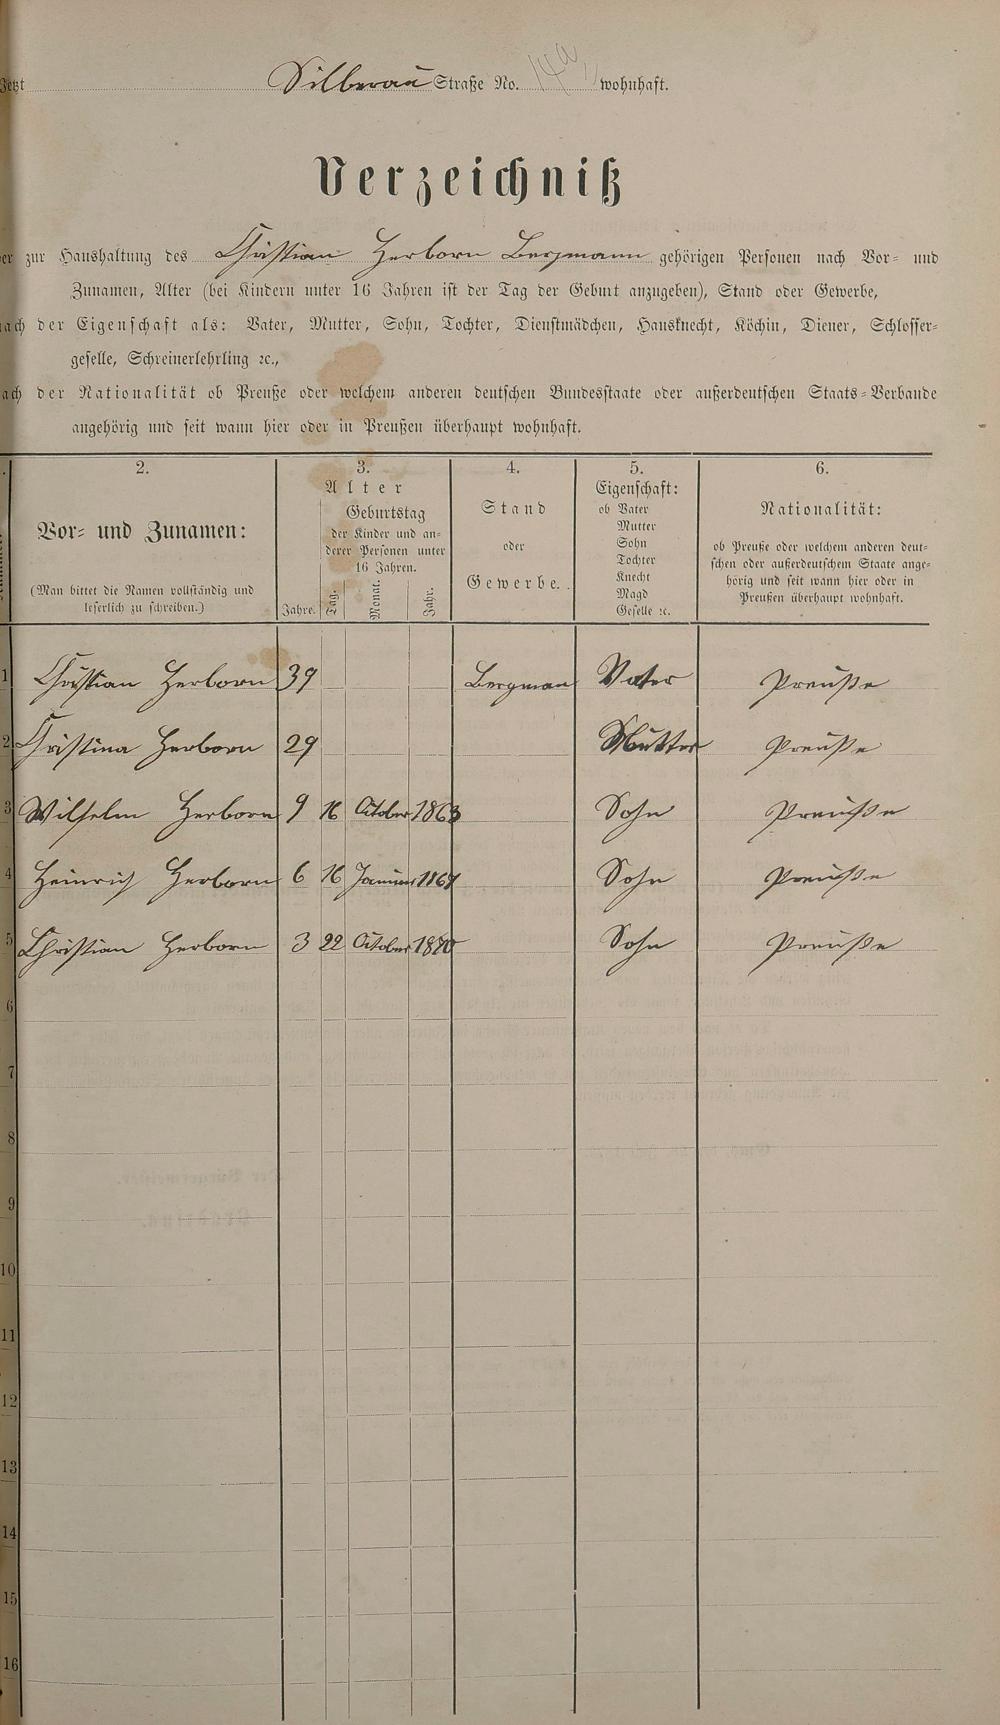 Jetzt Silberau Straße No. 14a wohnhaft.
Verzeichniß
der zur Haushaltung des Christian Herborn Bergmann gehörigen Personen nach Vor- und
Zunamen, Alter (bei Kindern unter 16 Jahren ist der Tag der Geburt anzugeben), Stand oder Gewerbe,
nach der Eigenschaft als: Vater, Mutter, Sohn, Tochter, Dienstmädchen, Hausknecht, Köchin, Diener, Schlosser-
geselle, Schreinerlehrling ꝛc.,
nach der Nationalität ob Preuße oder welchem anderen deutschen Bundesstaate oder außerdeutschen Staats-Verbande
angehörig und seit wann hier oder in Preußen überhaupt wohnhaft.
2. 3. 4. 5. 6.
Vor- und Zunamen:
(Man bittet die Namen vollständig und
leserlich zu schreiben.)
Alter
Jahre.
Geburtstag
der Kinder und an-
derer Personen unter
16 Jahren.
Tag. Monat. Jahr.
Stand
oder
Gewerbe.
Eigenschaft:
ob Vater
Mutter
Sohn
Tochter
Knecht
Magd
Geselle ꝛc.
Nationalität:
ob Preuße oder welchem anderen deut-
schen oder außerdeutschem Staate ange-
hörig und seit wann hier oder in
Preußen überhaupt wohnhaft.
1 Christian Herborn 39 Bergman Vater Preuße
2 Christina Herborn 29 Mutter Preuße
3 Wilhelm Herborn 9 16 October 1863 Sohn Preuße
4 Heinrich Herborn 6 16 Januar 1867 Sohn Preuße
5 Christian Herborn 3 22 October 1870 Sohn Preuße
6
7
8
9
10
11
12
13
14
15
16